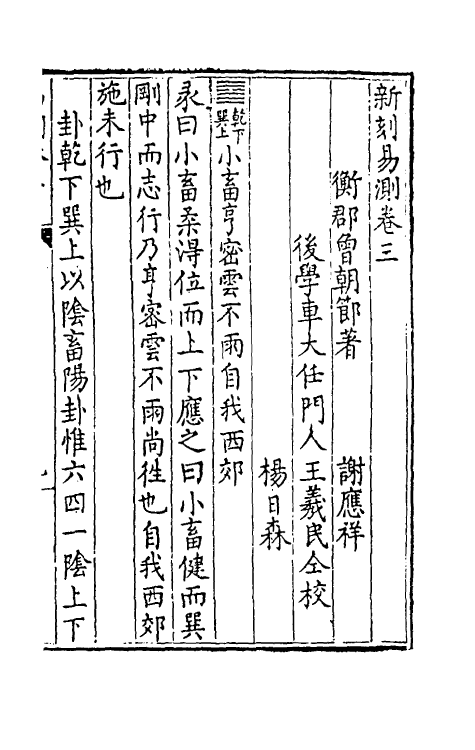 新刻易測卷三
衡郡曾朝節著　謝應祥
後學車大任門人王羲民仝校
楊日森
䷈乾下巽上小畜亨密雲不雨自我西郊
彖曰小畜柔得位而上下應之曰小畜健而巽
剛中而志行乃亨密雲不雨尚徃也自我西郊
施未行也
卦乾下巽上以陰畜陽卦惟六四一陰上下